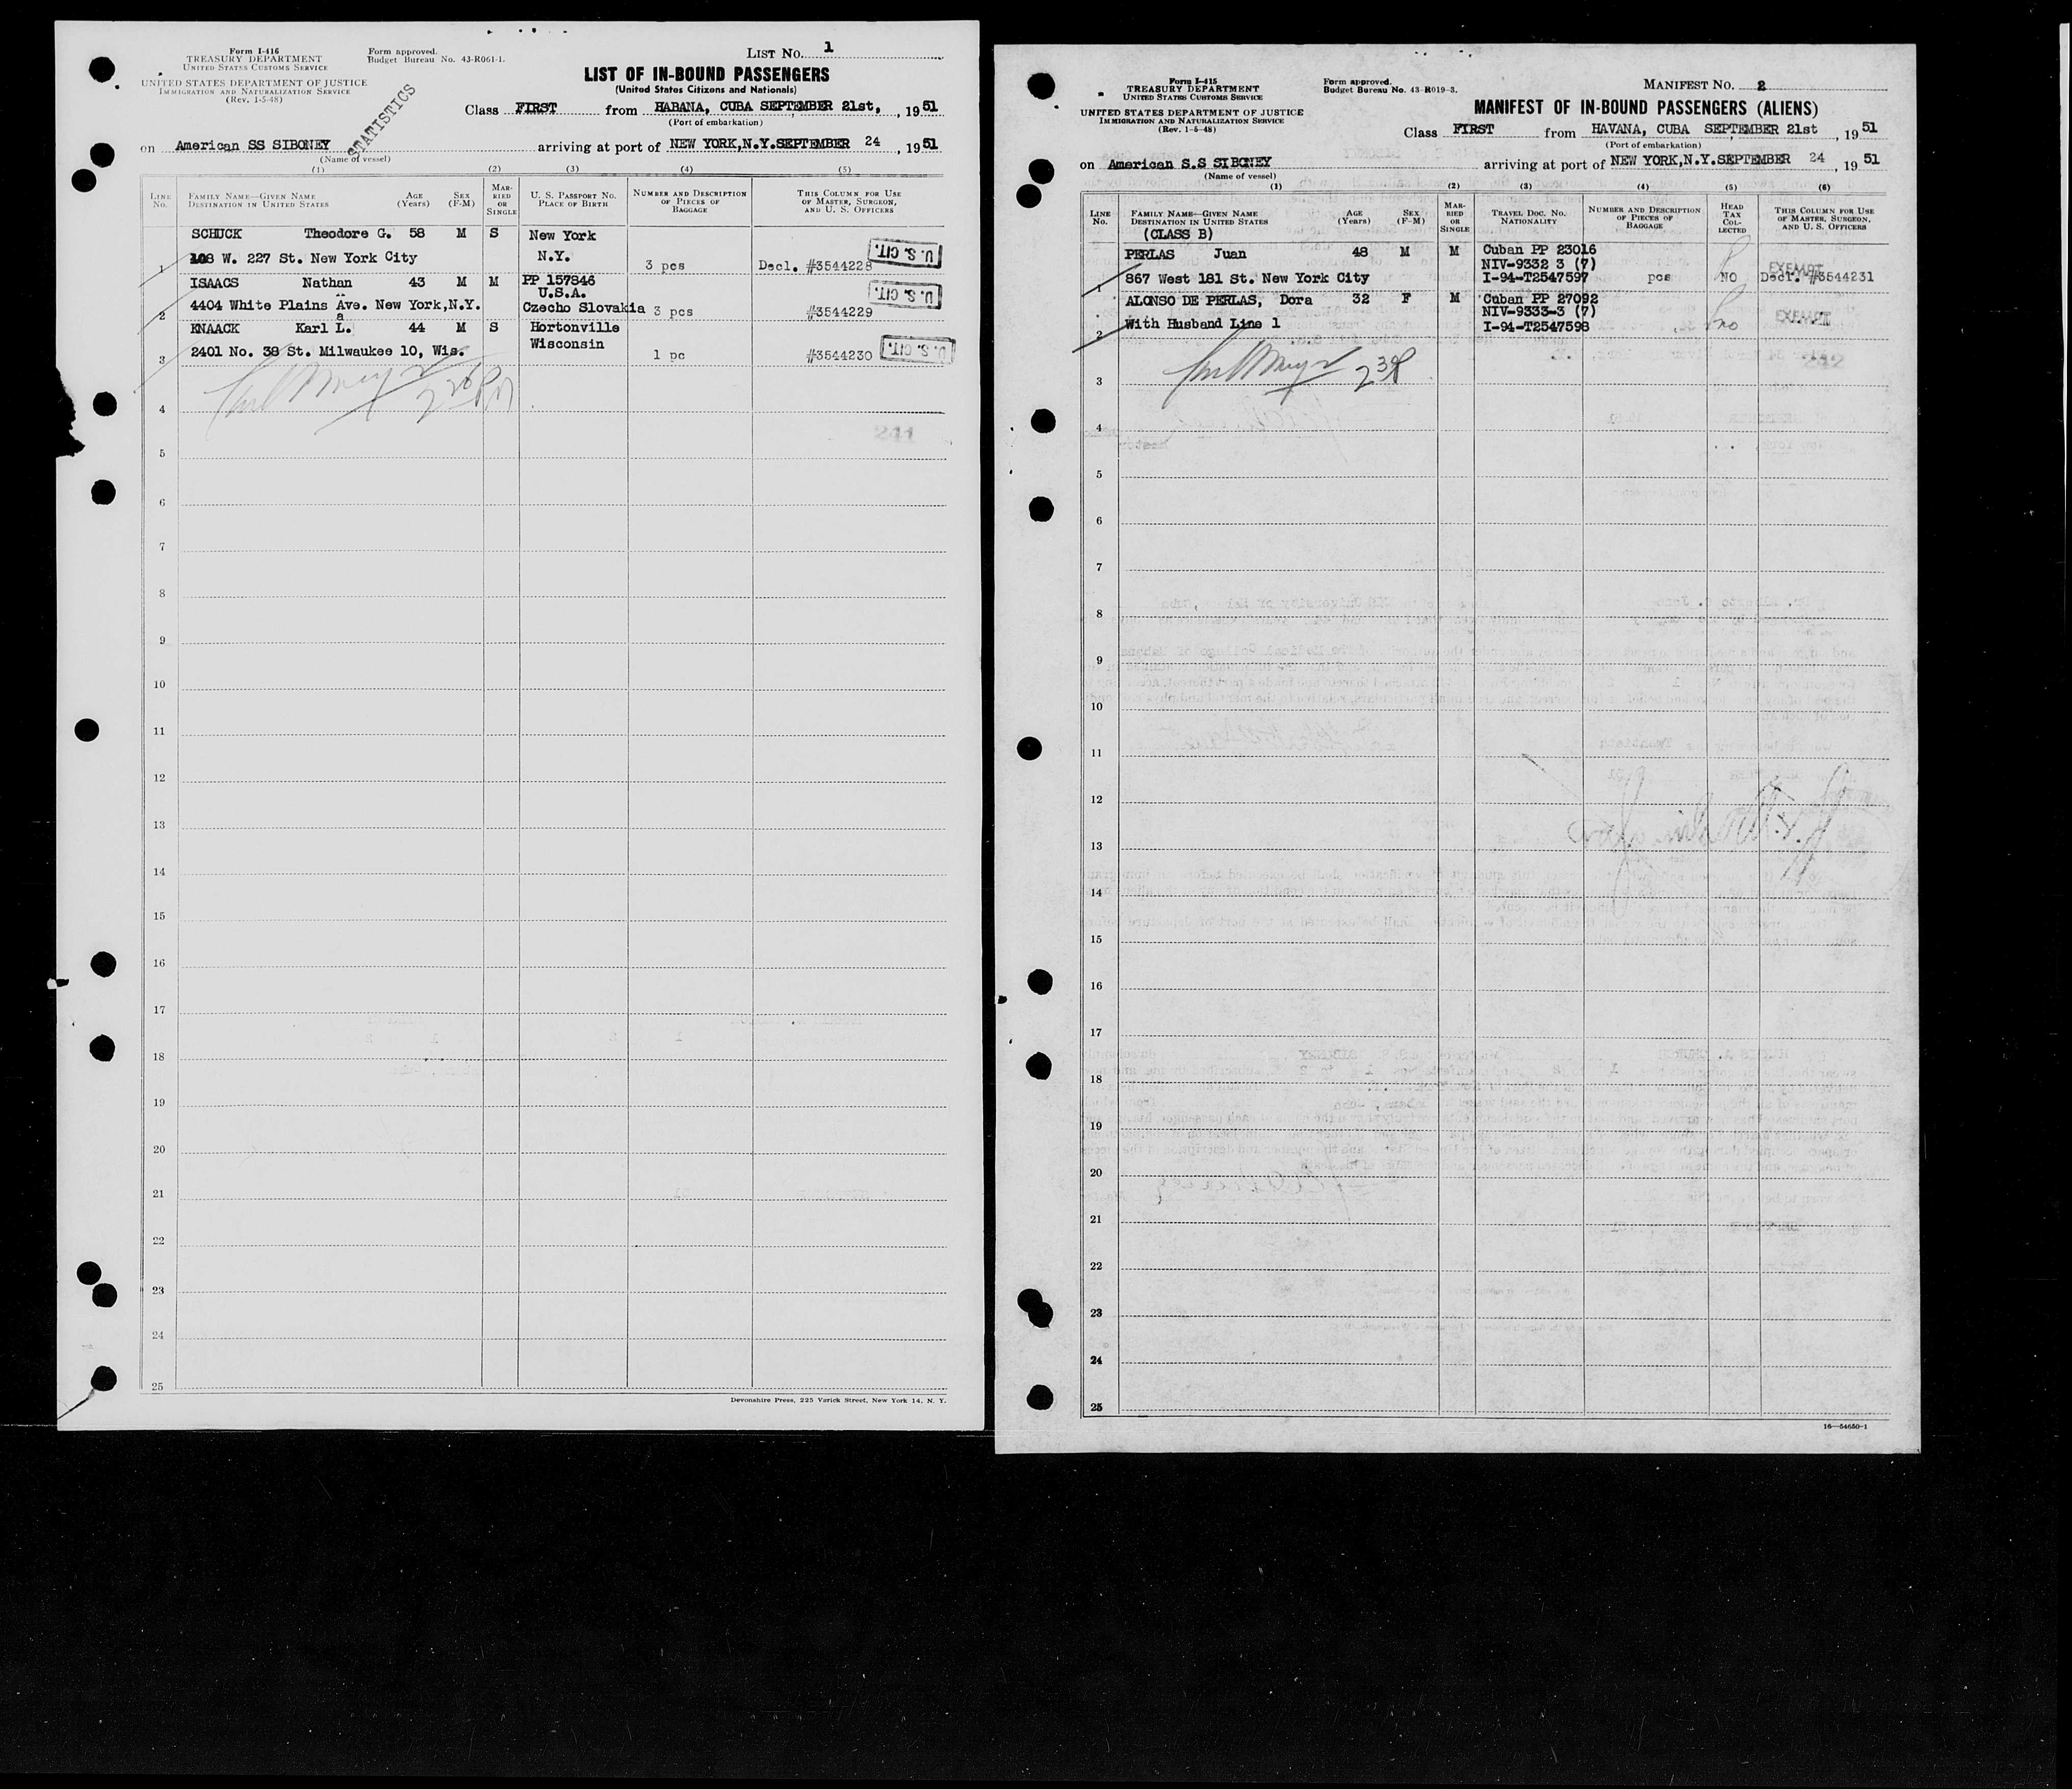 Form I-416
TREASURY DEPARTMENT
UNITED STATES CUSTOMS SERVICE
UNITED STATES DEPARTMENT OF JUSTICE
IMMIGRATION AND NATURALIZATION SERVICE
(Rev. 1-5-48)
Form approved.
Budget Bureau No. 43-R061-1.
STATISTICS
LIST NO. 1
LIST OF IN-BOUND PASSENGERS
(United States Citizens and Nationals)
Class FIRST from HABANA, CUBA SEPTEMBER 21st, , 1951
(Port of embarkation)
on American SS SIBONEY arriving at port of NEW YORK,N.Y.SEPTEMBER 24 , 1951
(Name of vessel)
(1) (2) (3) (4) (5)
LINE NO.
FAMILY NAME—GIVEN NAME
DESTINATION IN UNITED STATES
AGE (Years)
SEX (F-M)
MARRIED OR SINGLE
U. S. PASSPORT NO.
PLACE OF BIRTH
NUMBER AND DESCRIPTION OF PIECES OF BAGGAGE
THIS COLUMN FOR USE OF MASTER, SURGEON, AND U. S. OFFICERS
SCHUCK Theodore G. 58 M S New York
1 108 W. 227 St. New York City N.Y. 3 pcs Decl. #3544228 U. S. CIT.
ISAACS Nathan 43 M M PP 157846
U.S.A.
2 4404 White Plains Ave. New York,N.Y. Czecho Slovakia 3 pcs #3544229 U. S. CIT.
a
KNAACK Karl L. 44 M S Hortonville
3 2401 No. 38 St. Milwaukee 10, Wis. Wisconsin 1 pc #3544230 U. S. CIT.
4
241
5
6
7
8
9
10
11
12
13
14
15
16
17
18
19
20
21
22
23
24
25
Devonshire Press, 225 Varick Street, New York 14, N. Y.
Form I-415
TREASURY DEPARTMENT
UNITED STATES CUSTOMS SERVICE
UNITED STATES DEPARTMENT OF JUSTICE
IMMIGRATION AND NATURALIZATION SERVICE
(Rev. 1-5-48)
Form approved.
Budget Bureau No. 43-R019-3.
MANIFEST NO. 2
MANIFEST OF IN-BOUND PASSENGERS (ALIENS)
Class FIRST from HAVANA, CUBA SEPTEMBER 21st , 1951
(Port of embarkation)
on American S.S SIBONEY arriving at port of NEW YORK,N.Y.SEPTEMBER 24 , 1951
(Name of vessel)
(1) (2) (3) (4) (5) (6)
LINE NO.
FAMILY NAME—GIVEN NAME
DESTINATION IN UNITED STATES
(CLASS B)
AGE (Years)
SEX (F-M)
MARRIED OR SINGLE
TRAVEL DOC. NO.
NATIONALITY
NUMBER AND DESCRIPTION OF PIECES OF BAGGAGE
HEAD TAX COLLECTED
THIS COLUMN FOR USE OF MASTER, SURGEON, AND U. S. OFFICERS
PERLAS Juan 48 M M Cuban PP 23016
NIV-9332 3 (7) EXEMPT
1 867 West 181 St. New York City I-94-T2547597 pcs NO Decl. #3544231
ALONSO DE PERLAS, Dora 32 F M Cuban PP 27092
NIV-9333-3 (7) EXEMPT
2 With Husband Line 1 I-94-T2547598 no
242
3
4
5
6
7
8
9
10
11
12
13
14
15
16
17
18
19
20
21
22
23
24
25
16—54650-1